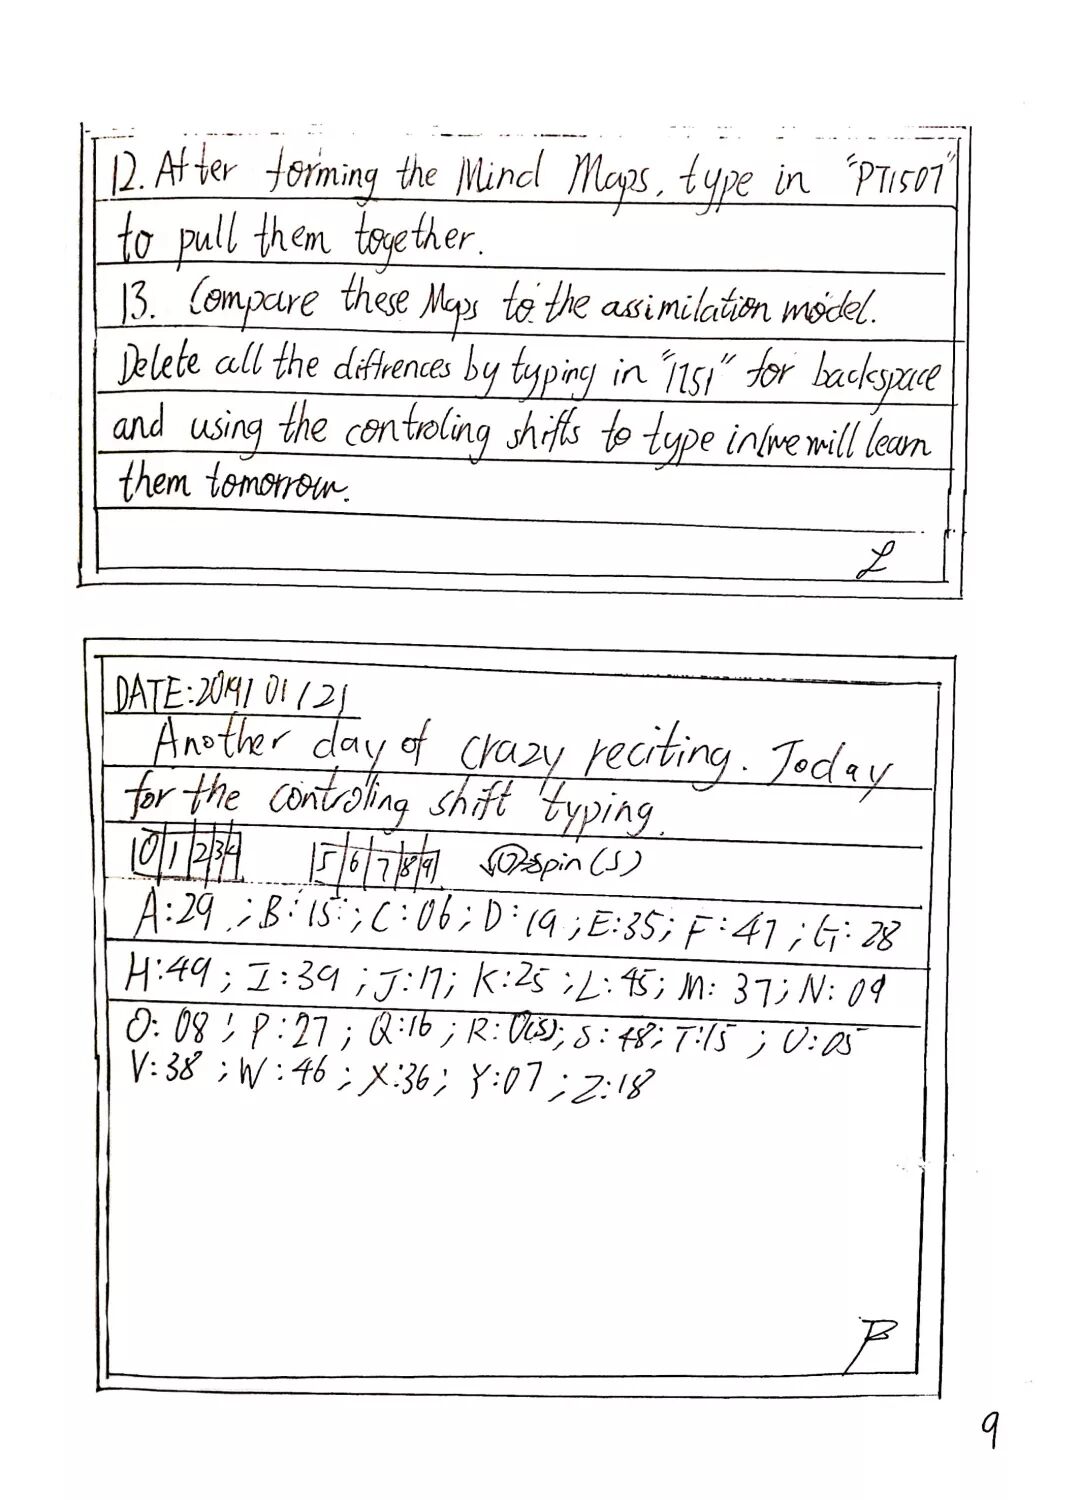 12. After forming the Mind Maps, type in "PT1507"
to pull them together.
13. Compare these Maps to the assimilation model.
Delete all the diffrences by typing in "1751" for backspace
and using the controling shifts to type in(we will learn
them tomorrow.
L
DATE:2019/01/21
Another day of crazy reciting. Today
for the controling shift typing.
0 1 2 3 4 5 6 7 8 9 spin(S)
A:29 ; B:15 ; C:06 ; D:19 ; E:35 ; F:47 ; G:28
H:49 ; I:39 ; J:17 ; K:25 ; L:45 ; M:37 ; N:09
O:08 ; P:27 ; Q:16 ; R:0(S); S:48; T:15 ; U:05
V:38 ; W:46 ; X:36; Y:07 ; Z:18
9